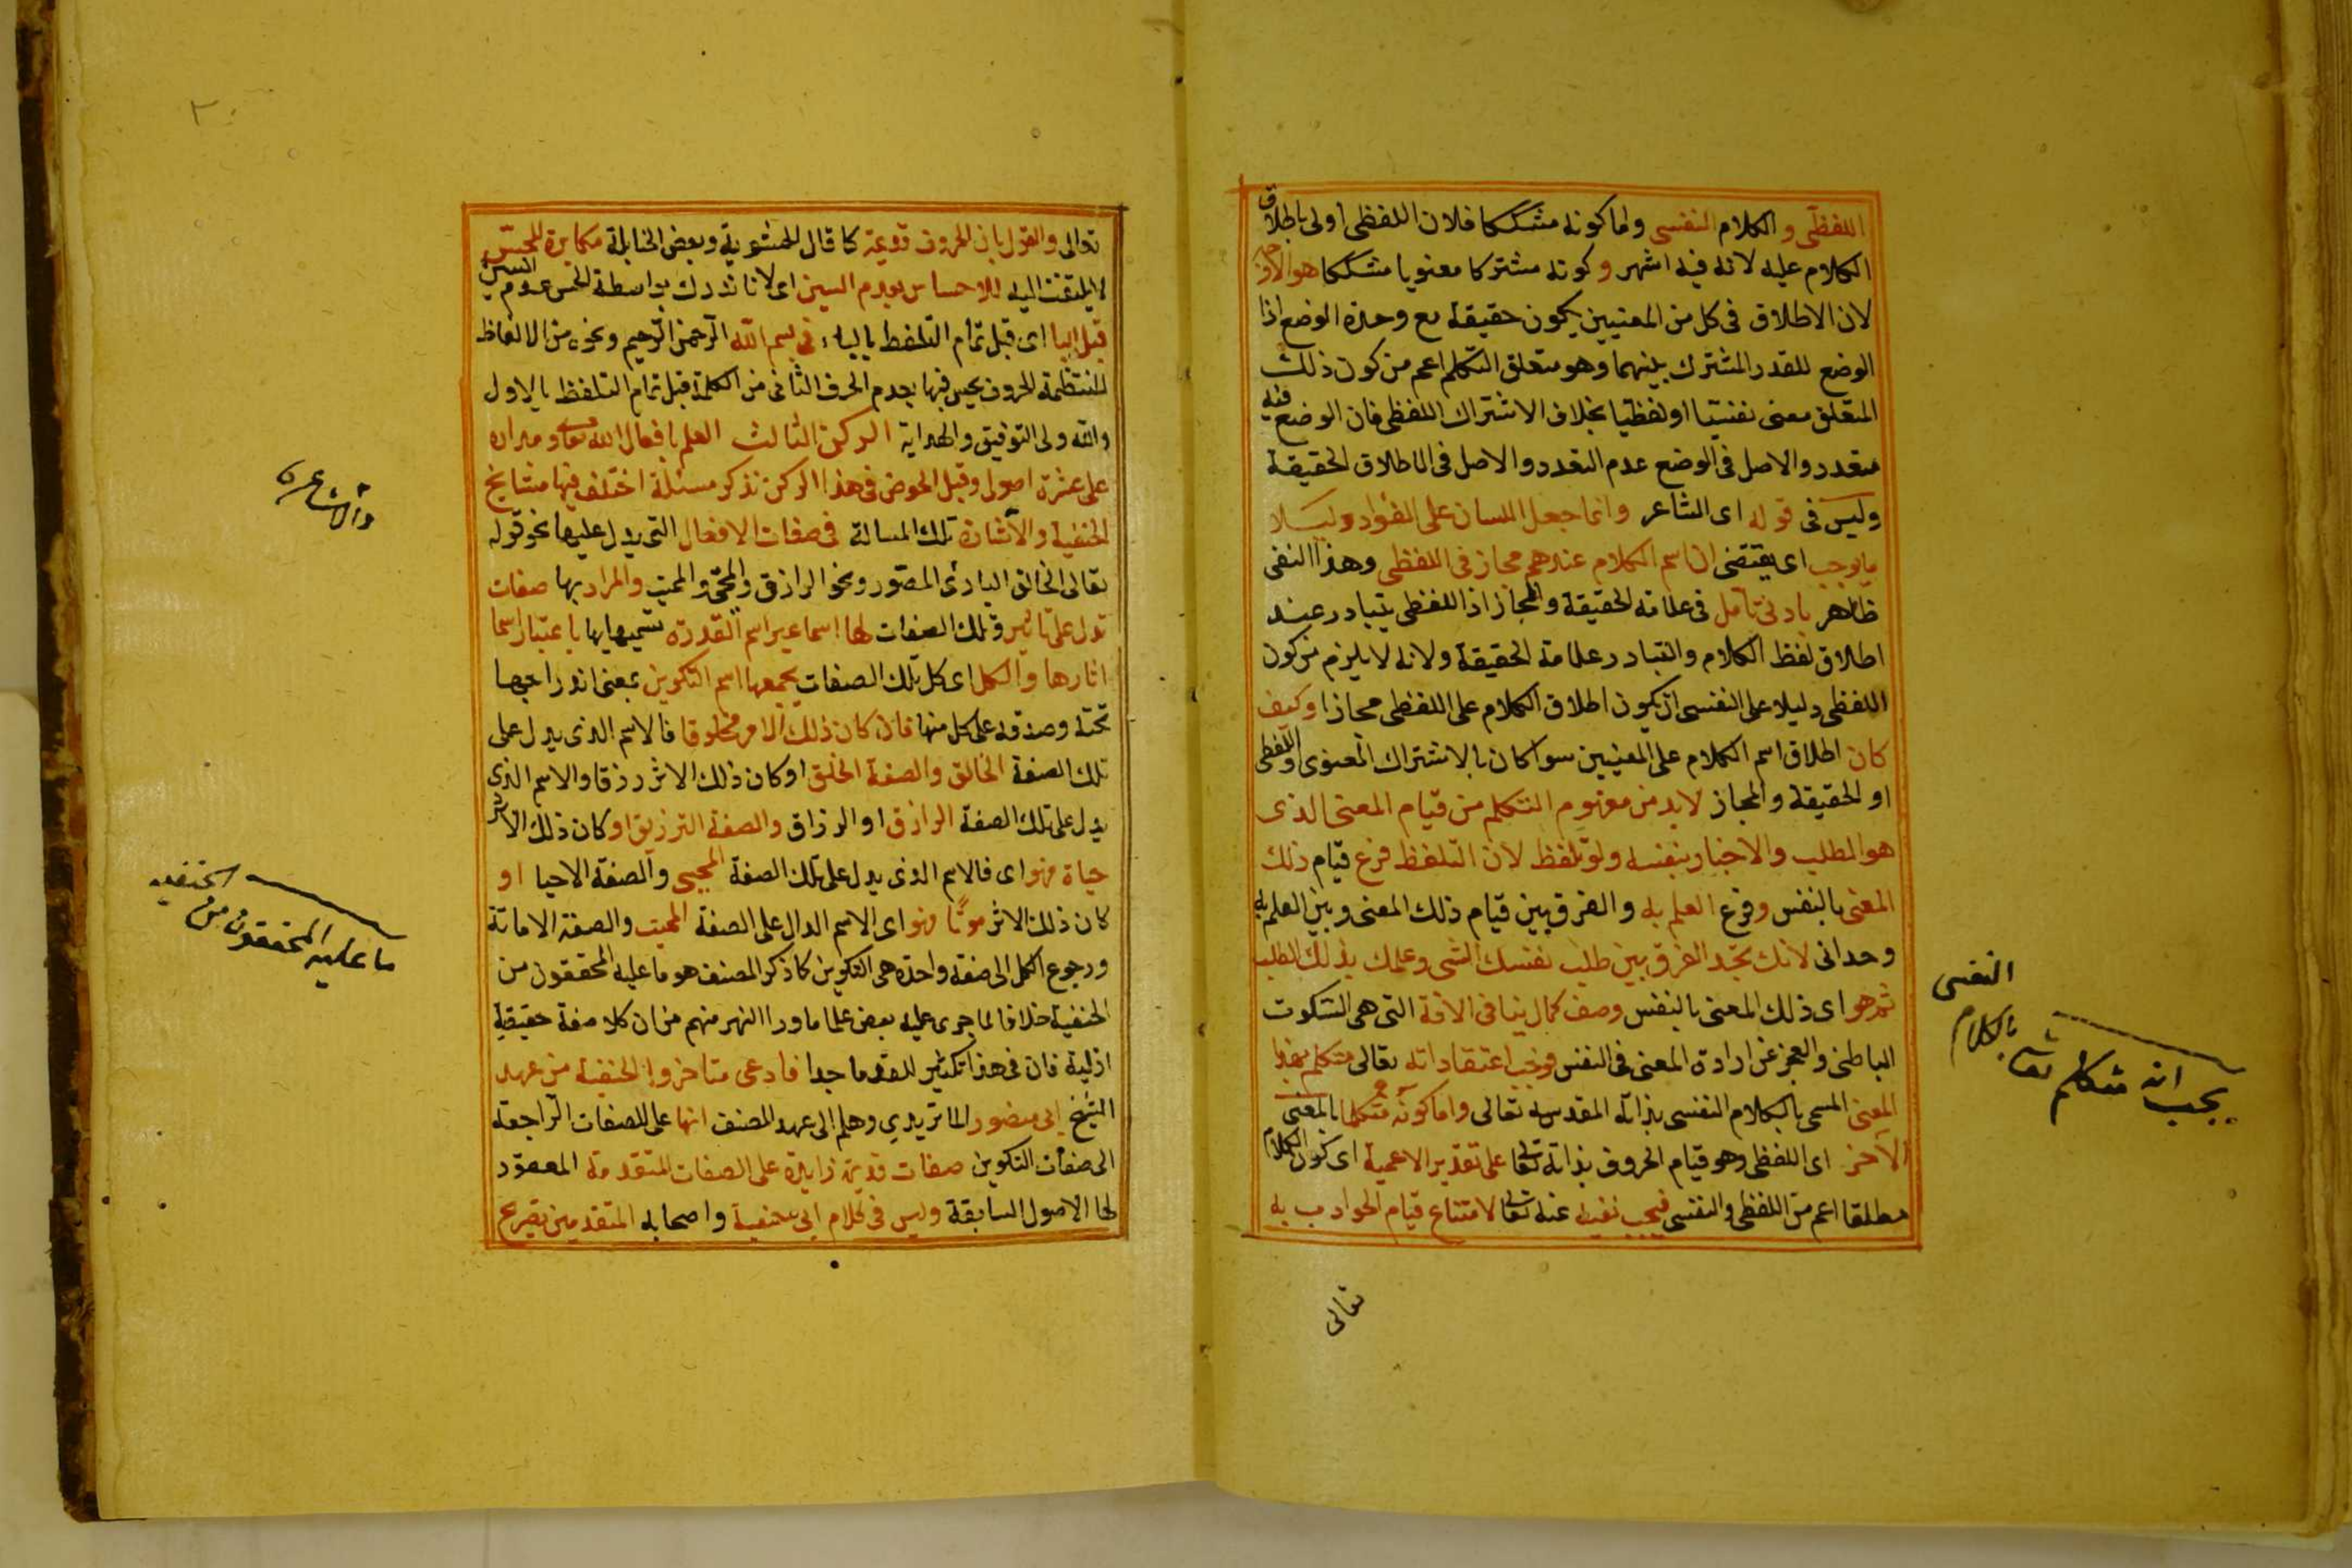 اللفظى والكلام النفسى واما كونه مشككا فلان اللفظى اولى باطلاق
الكلام عليه لانه فيه اشهر وكونه مشتركا معنويا مشككا هو الاوجه
لان الاطلاق فى كل من المعنيين يكون حقيقة مع وحدة الوضع اذا
الوضع للقدر المشترك بينهما وهو متعلق التكلم اعم من كون ذلك
المتعلق معنى نفسيا او لفظيا بخلاف الاشتراك اللفظى فان الوضع فيه
متعدد والاصل فى الوضع عدم التعدد والاصل فى الاطلاق الحقيقة
وليس فى قوله اى الشاعر وانما جعل اللسان على الفؤاد دليلا
ما يوجب اى يقتضى ان اسم الكلام عندهم مجاز فى اللفظى وهذا النفى
ظاهر بادنى تأمل فى علامة الحقيقة والمجاز اذ اللفظى يتبادر عند
اطلاق لفظ الكلام والتبادر علامة الحقيقة ولانه لا يلزم من كون
اللفظى دليلا على النفسى ان يكون اطلاق الكلام على اللفظى مجازا وكيف
كان اطلاق اسم الكلام على المعنيين سوا كان بالاشتراك المعنوى او اللفظى
او الحقيقة والمجاز لا بد من مفهوم التكلم من قيام المعنى الذى
هو الطلب والاخبار بنفسه ولو تلفظ لان التلفظ فرع قيام ذلك
المعنى بالنفس وفرع العلم به والفرق بين قيام ذلك المعنى وبين العلم به
وحدانى لانك تجد الفرق بين طلب نفسك الشى وعلمك بذلك الطلب
ثم هو اى ذلك المعنى بالنفس وصف كمال ينافى الافة التى هى السكوت
الباطنى والعجز عن ارادة المعنى فى النفس فوجب اعتقاد انه تعالى متكلم بهذا
المعنى المسمى بالكلام النفسى بذاته المقدسة تعالى واما كونه متكلما بالمعنى
الآخر اى اللفظى وهو قيام الحروف بذاته تعالى على تقدير الاعمية اى كون الكلام
مطلقا اعم من اللفظى والنفسى فيجب نفيه عنه تعالى لامتناع قيام الحوادث به
يجب انه متكلم تعالى بالكلام
النفسى
تعالى
تعالى والقول بان الحروف قديمة كما قال الحشوية وبعض الحنابلة مكابرة للحس
لا يلتفت اليه للاحساس بعدم السين اى لانا ندرك بواسطة الحس عدم السين
قبل البا اى قبل تمام التلفظ بالباء فى بسم الله الرحمن الرحيم ونحوه من الالفاظ
المنتظمة الحروف يحس فيها بعدم الحرف الثانى من الكلمة قبل تمام التلفظ بالاول
والله ولى التوفيق والهداية الركن الثالث العلم بافعال الله تعالى ومداره
على عشرة اصول وقبل الخوض فى هذا الركن نذكر مسئلة اختلف فيها مشايخ
الحنفية والاشاعرة تلك المسالة فى صفات الافعال التى يدل عليها نحو قوله
تعالى الخالق البارئ المصور ونحو الرازق والمحى والمميت والمراد بها صفات
تدل على تاثير وتلك الصفات لها اسما غير اسم القدرة تسميها بها باعتبار اسما
اثارها والكل اى كل تلك الصفات يجمعها اسم التكوين بمعنى اندراجها
تحته وصدقه على كل منها فان كان ذلك الاثر مخلوقا فالاسم الذى يدل على
تلك الصفة الخالق والصفة الخلق او كان ذلك الاثر رزقا والاسم الذى
يدل على تلك الصفة الرازق او الرزاق والصفة الترزيق او كان ذلك الاثر
حياة فهو اى فالاسم الذى يدل على تلك الصفة المحيى والصفة الاحيا او
كان ذلك الاثر موتا فهو اى الاسم الدال على الصفة المميت والصفة الاماتة
ورجوع الكل الى صفة واحدة هى التكوين كما ذكر المصنف هو ما عليه المحققون من
الحنفية خلافا لما جرى عليه بعض علما ماورا النهر منهم من ان كلا صفة حقيقية
ازلية فان فى هذا تكثير للقدما جدا فادعى متاخروا الحنفية من عهد
الشيخ ابى منصور الماتريدى وهلم الى عهد المصنف انها على الصفات الراجعة
الى صفات التكوين صفات قديمة زايدة على الصفات المتقدمة المعقود
لها الاصول السابقة وليس فى كلام ابى حنيفة واصحابه المتقدمين تصريح
والاشاعرة
ما عليه المحققون من
الحنفيه